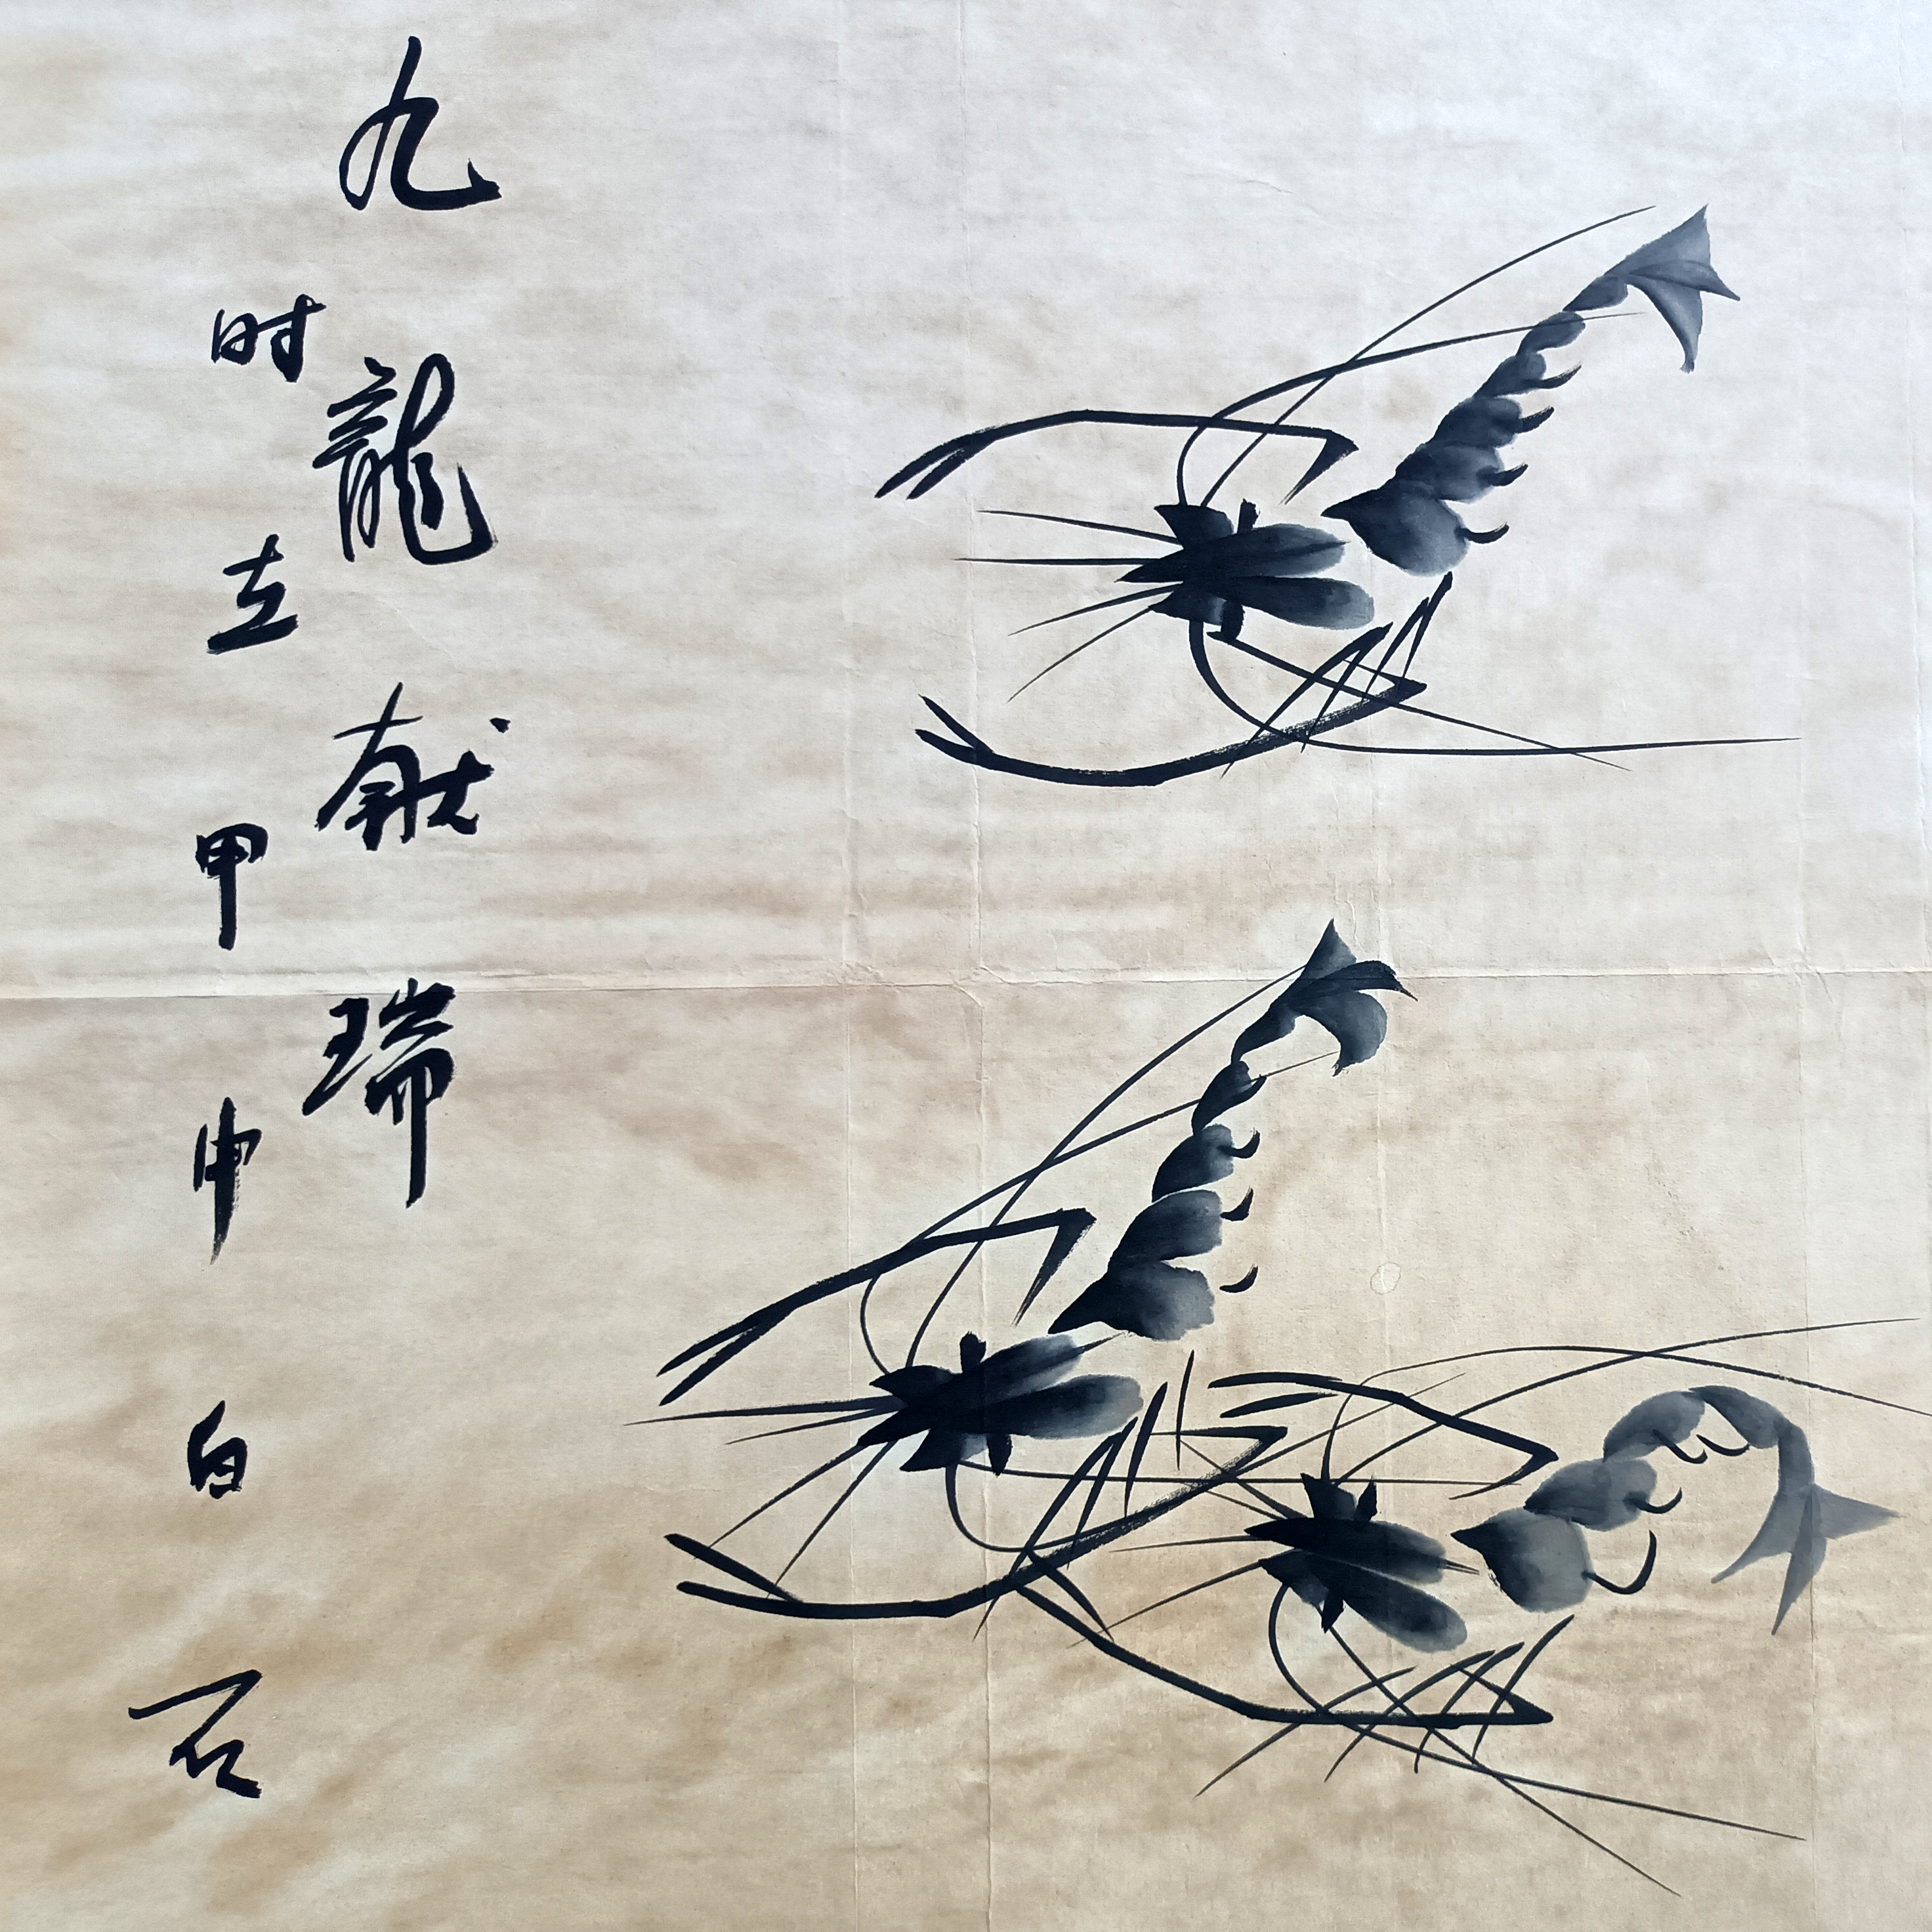 九龍献瑞
时在甲申白石